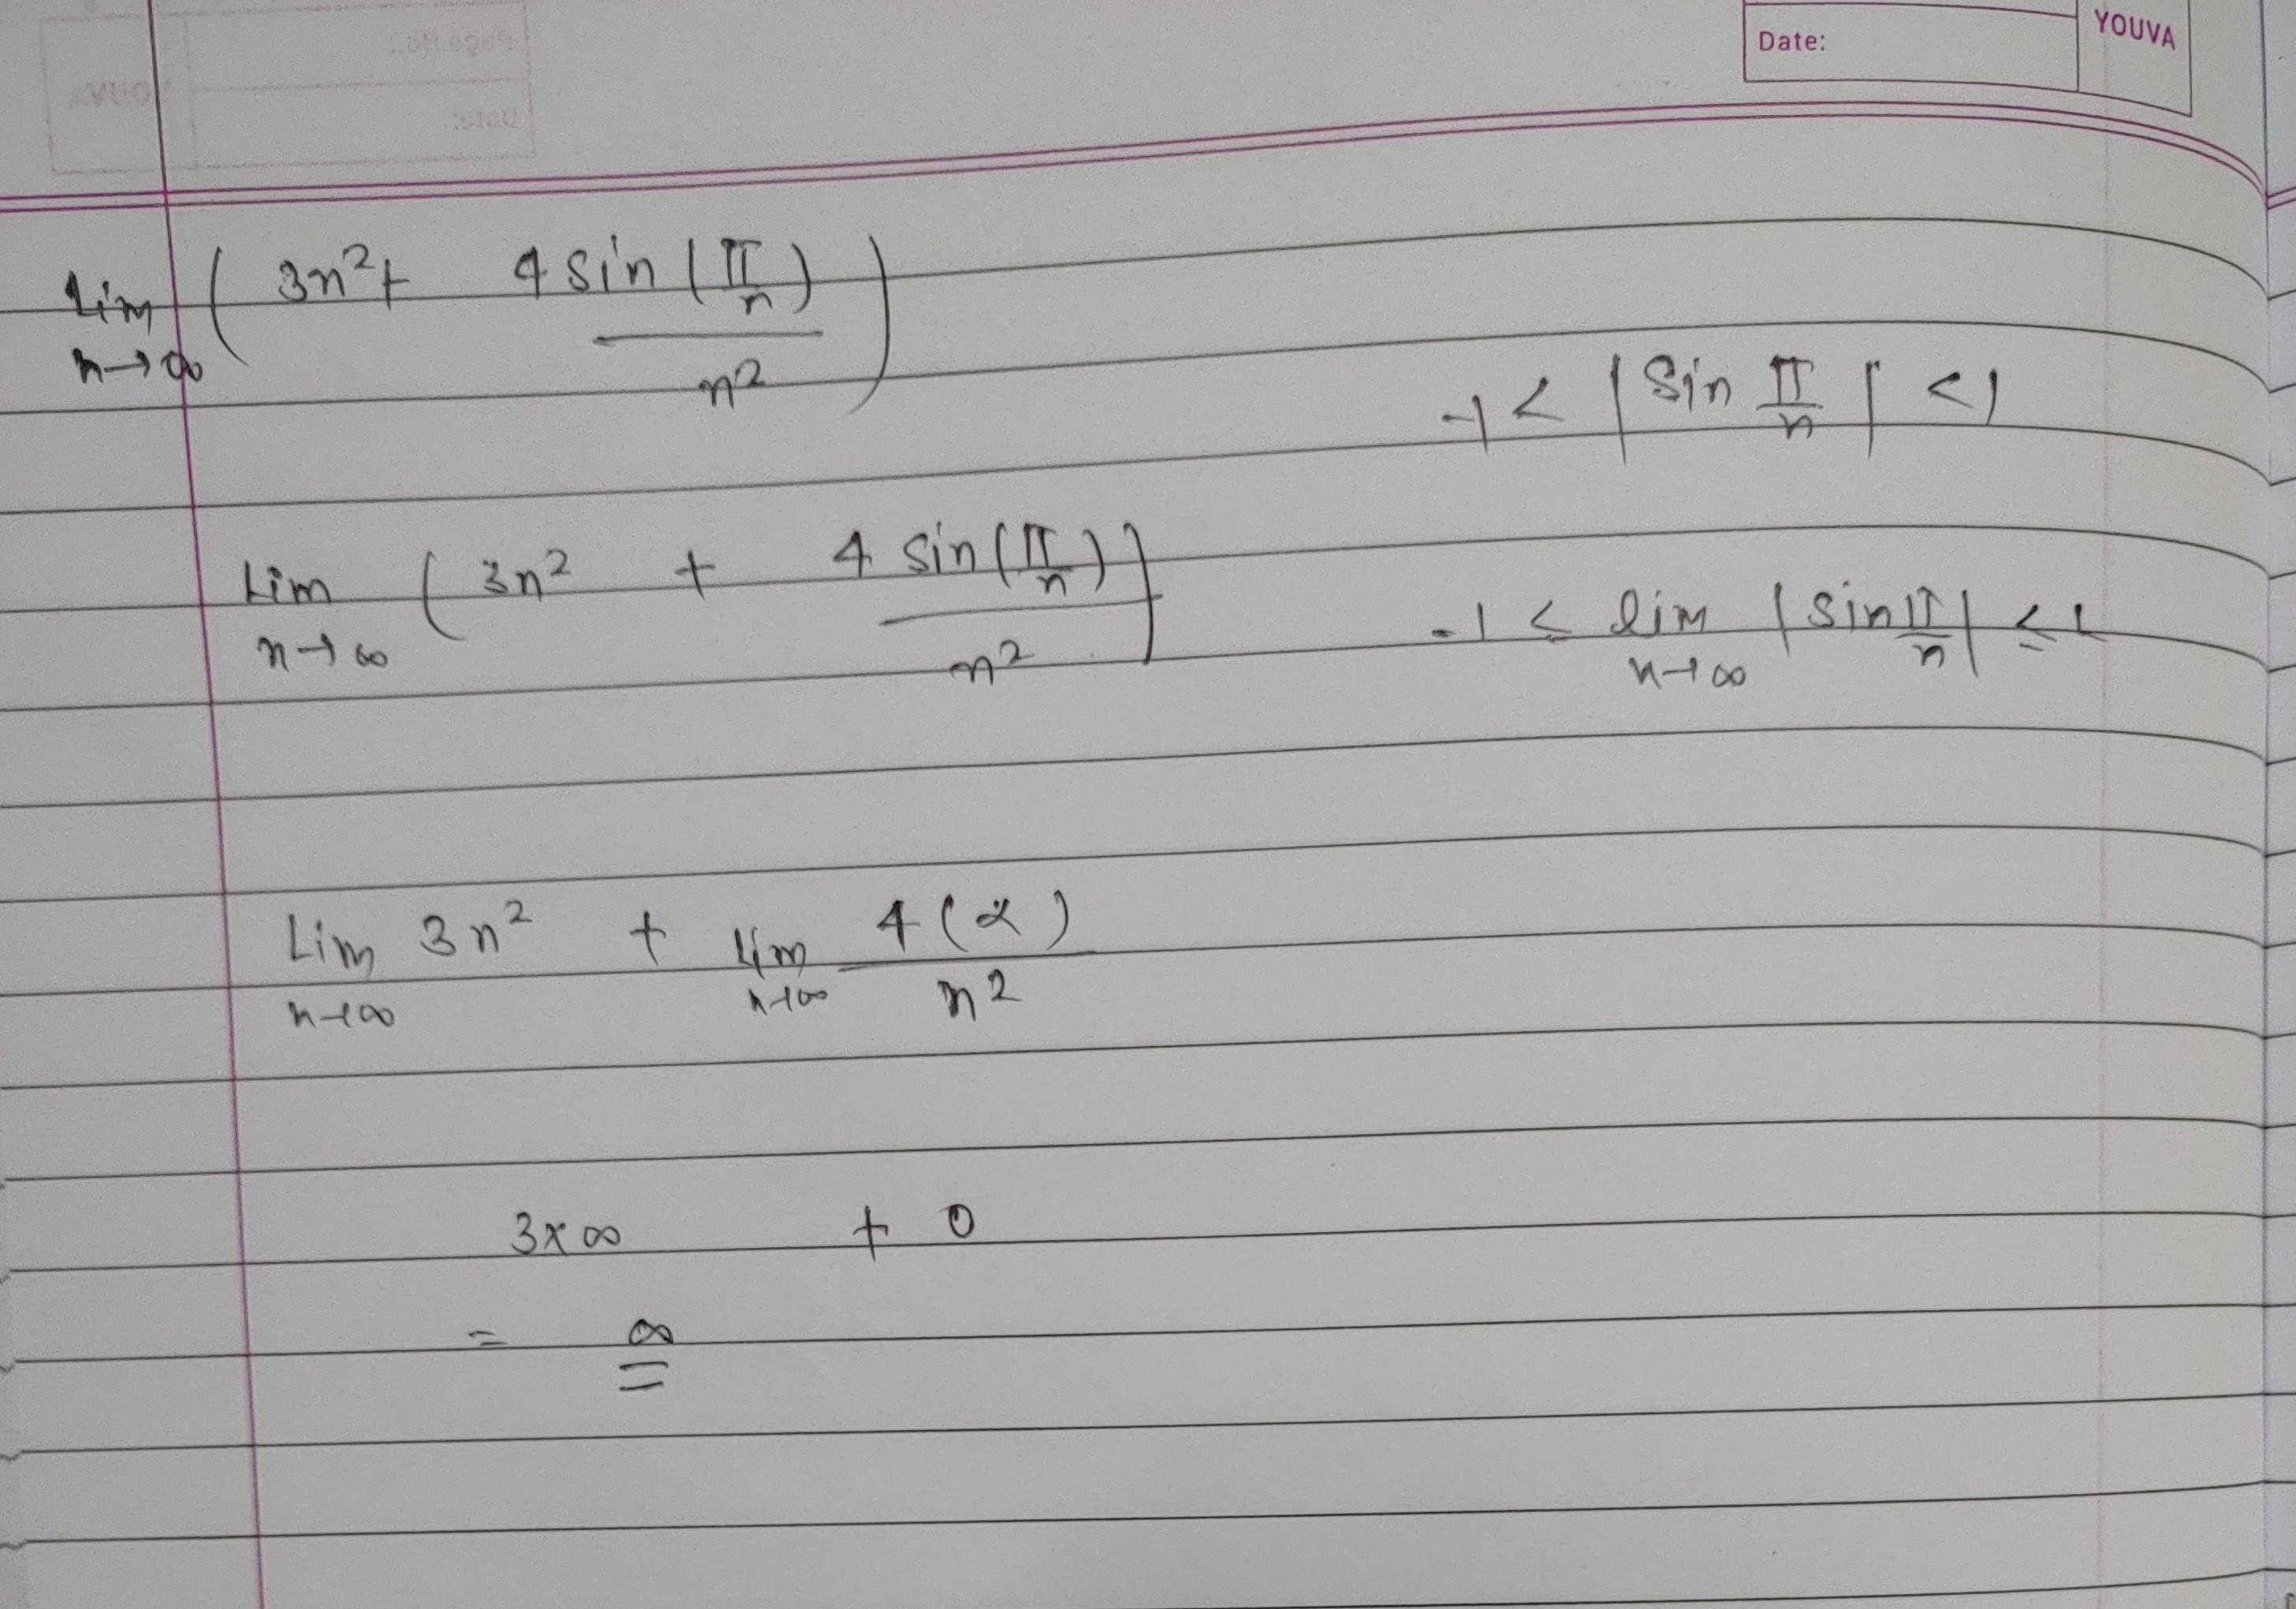 Date:
YOUVA
Lim n→∞ ( 3n² + 4 sin (π/n) / n² )
-1 < | Sin π/n | < 1
Lim n→∞ ( 3n² + 4 sin (π/n) / n² )
-1 ≤ lim n→∞ | sin π/n | ≤ 1
Lim n→∞ 3n² + Lim n→∞ 4 (α) / n²
3 × ∞ + 0
= ∞